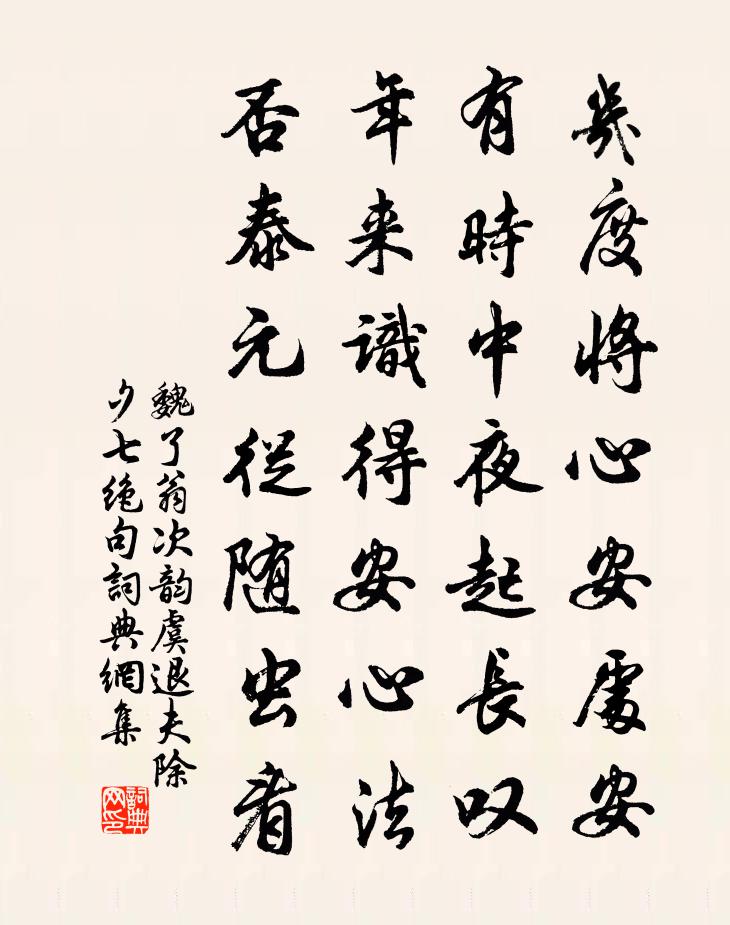 幾度將心安處安
有時中夜起長叹
年来識得安心法
否泰元從随出看
魏了翁次韵虞退夫除
夕七绝句詞典網集
詞典
网印